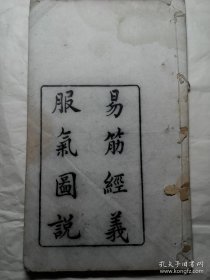 易筋經義
服氣圖説
孔夫子旧书网